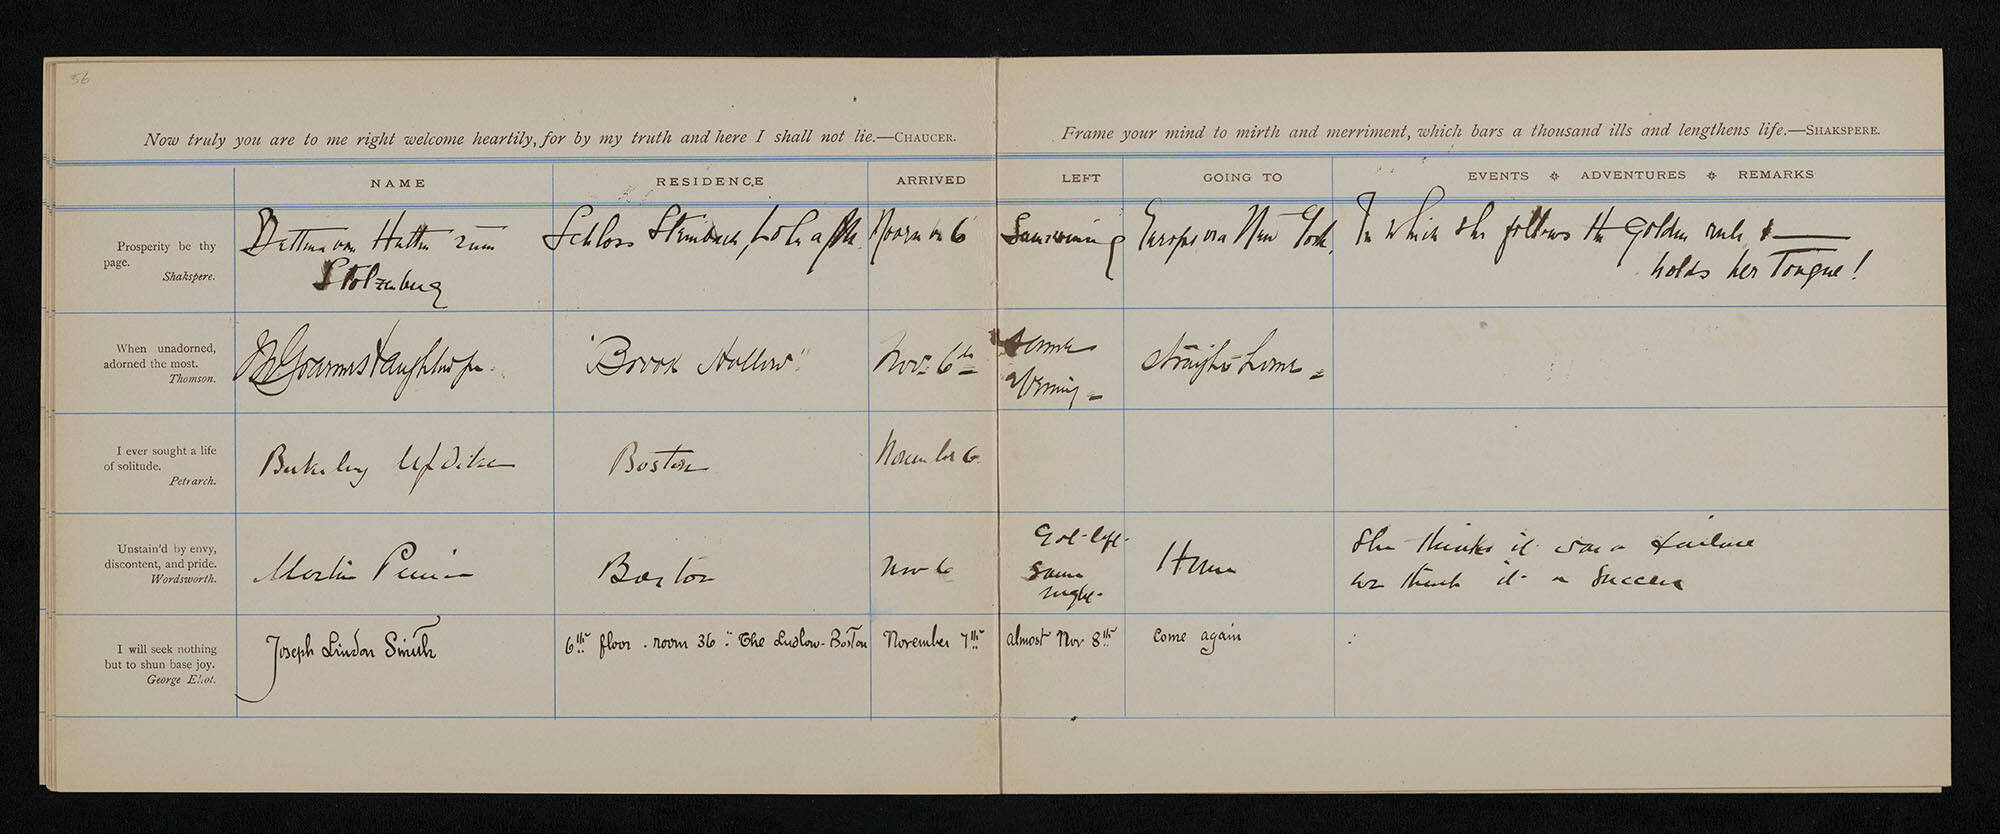 56
Now truly you are to me right welcome heartily, for by my truth and here I shall not lie.—CHAUCER.
Frame your mind to mirth and merriment, which bars a thousand ills and lengthens life.—SHAKSPERE.
NAME RESIDENCE ARRIVED LEFT GOING TO EVENTS ADVENTURES REMARKS
Prosperity be thy
page.
Shakspere.
Bettina von Hutten zum
Stolzenberg
Schloss Steinbach, Lohr a/M.
November 6
Same evening
Europe via New York.
In which she follows the golden rule &
holds her Tongue!
When unadorned,
adorned the most.
Thomson.
"Brook Hollow"
Nov. 6th
same
evening
straight home
I ever sought a life
of solitude.
Petrarch.
Berkeley Updike
Boston
November 6
Unstain'd by envy,
discontent, and pride.
Wordsworth.
Boston
Nov 6
Got left
same
night.
Home
She thinks it was a failure
we think it a success
I will seek nothing
but to shun base joy.
George Eliot.
Joseph Lindon Smith
6th floor . room 36 : The Ludlow - Boston
November 7th
almost Nov 8th
come again